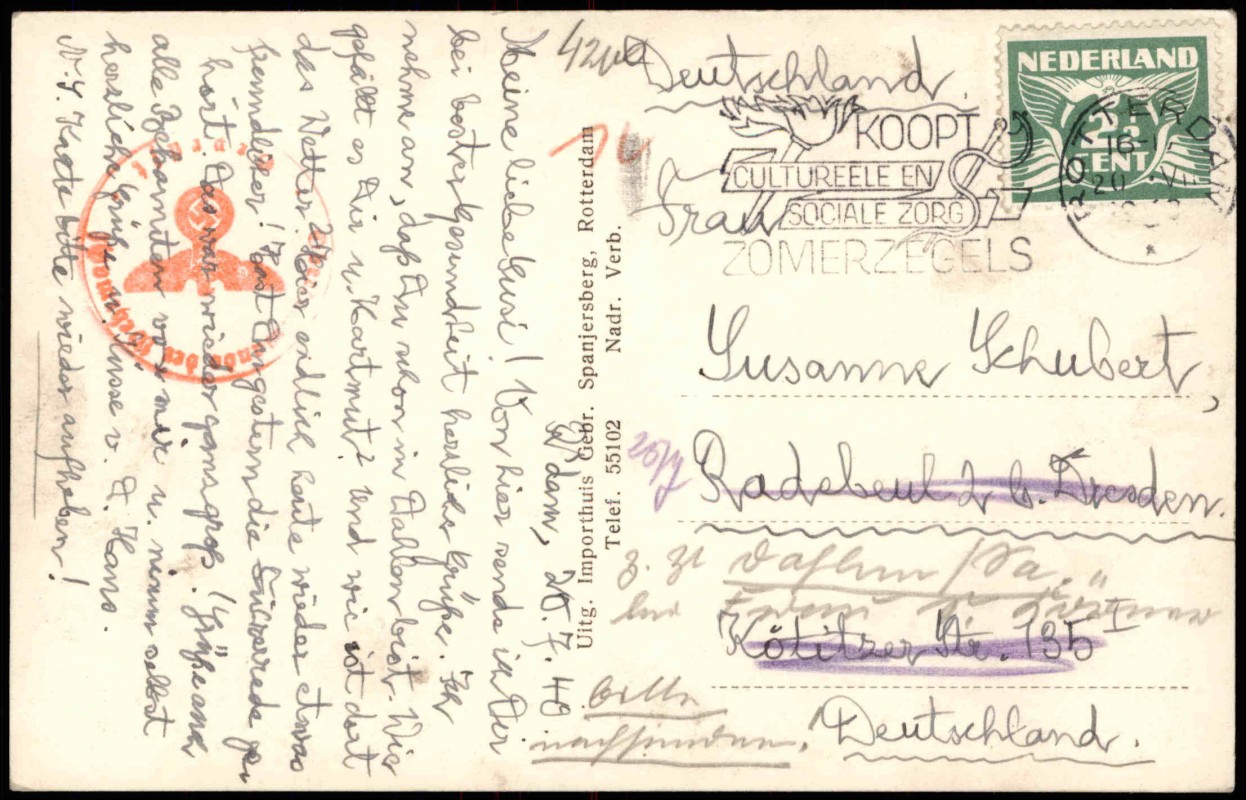 R'dam, 20.7.40
Meine liebe Susi! Von hier sende ich Dir
bei bester Gesundheit herzliche Grüße. Ich
nehme an, daß Du schon in Dahlen bist. Wie
gefällt es Dir u. Hartmut? Und wie ist dort
das Wetter? Hier endlich heute wieder etwas
freundlicher! Hast Du gestern die Führerrede ge-
hört. Das war wieder ganz groß! Grüße auch
alle Bekannten von mir u. nimm selbst
herzliche Grüße u. Küsse v. D. Hans.
N.S. Karte bitte wieder aufheben!
Uitg. Importhuis Gebr. Spanjersberg, Rotterdam
Telef. 55102 Nadr. Verb.
Deutschland.
NEDERLAND
2½
CENT
ROTTERDAM
16-
20 VII
KOOPT
CULTUREELE EN
SOCIALE ZORG
ZOMERZEGELS
Frau
Susanne Schubert,
Radebeul 2 b. Dresden.
z. Zt. Dahlen/Sa.
bei
Kötitzer Str. 135
bitte
nachsenden.
Deutschland.
der Wehrmacht